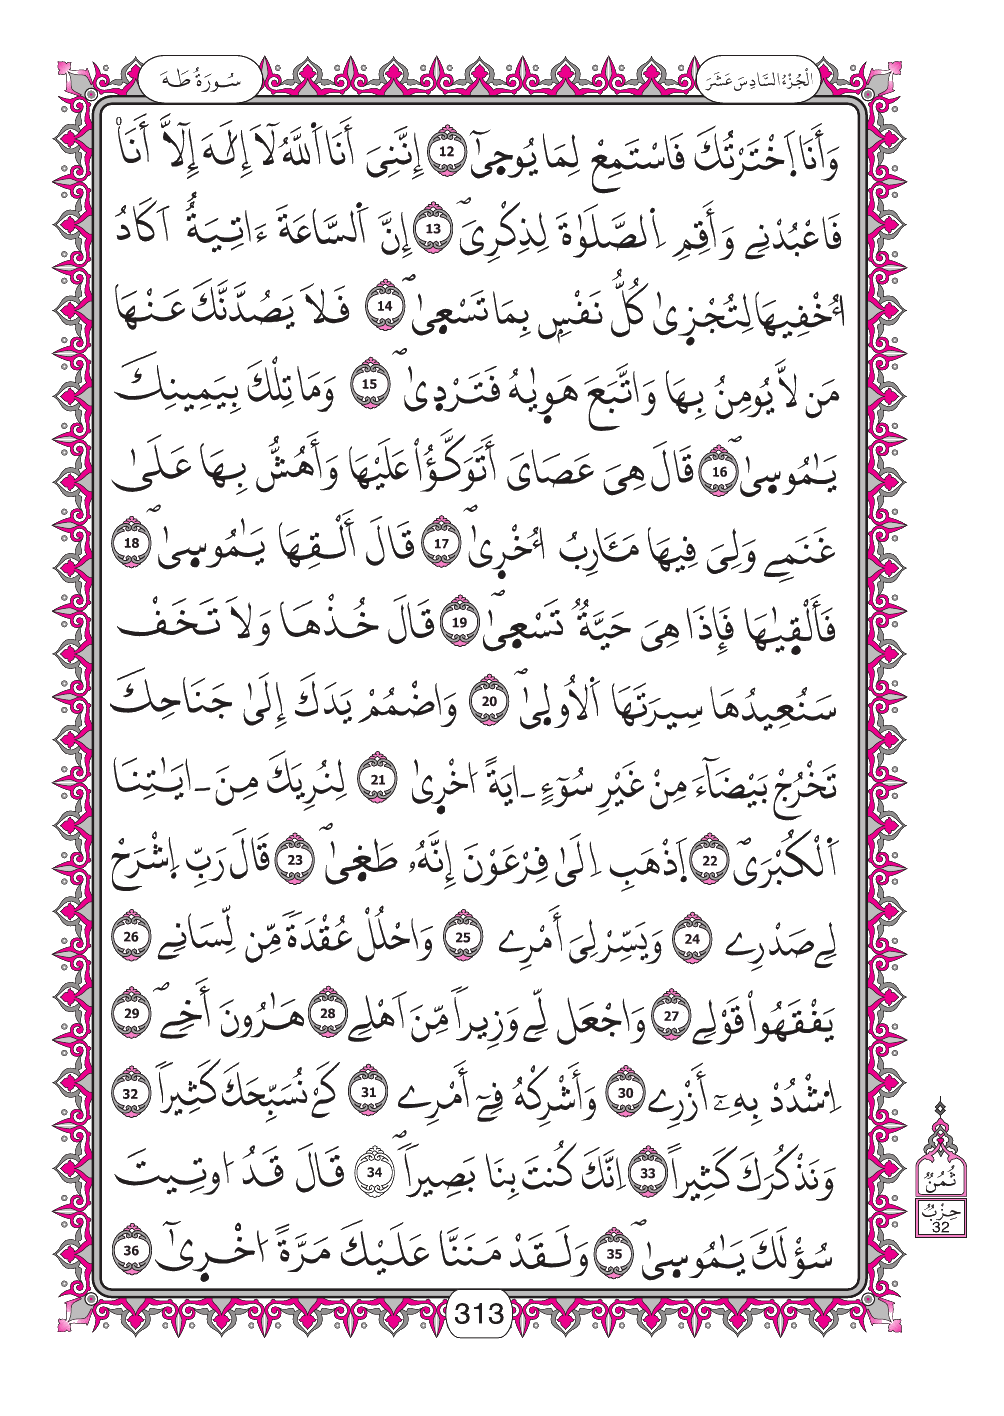 الْجُزْءُ السَّادِسَ عَشَرَ
سُورَةُ طَهَ
وَأَنَا اَخْتَرْتُكَ فَاسْتَمِعْ لِمَا يُوحٜىٰٓ 12 إِنَّنِىَ أَنَا اَ۬للَّهُ لَآ إِلَٰهَ إِلَّآ أَنَا۠
فَاعْبُدْنِے وَأَقِمِ اِ۬لصَّلَوٰةَ لِذِكْرِىَٓ 13 إِنَّ اَ۬لسَّاعَةَ ءَاتِيَةٌ اَكَادُ
أُخْفِيهَا لِتُجْزٜىٰ كُلُّ نَفْسِۢ بِمَا تَسْعٜىٰۖ 14 فَلَا يَصُدَّنَّكَ عَنْهَا
مَن لَّا يُومِنُ بِهَا وَاتَّبَعَ هَوٜىٰهُ فَتَرْدٜىٰۖ 15 وَمَا تِلْكَ بِيَمِينِكَ
يَٰمُوسٜىٰۖ 16 قَالَ هِىَ عَصَاىَ أَتَوَكَّؤُاْ عَلَيْهَا وَأَهُشُّ بِهَا عَلَىٰ
غَنَمِے وَلِىَ فِيهَا مَـَٔارِبُ أُخْرٜىٰۖ 17 قَالَ أَلْقِهَا يَٰمُوسٜىٰۖ 18
فَأَلْقٜىٰهَا فَإِذَا هِىَ حَيَّةٌ تَسْعٜىٰۖ 19 قَالَ خُذْهَا وَلَا تَخَفْ
سَنُعِيدُهَا سِيرَتَهَا اَ۬لُاولٜىٰۖ 20 وَاضْمُمْ يَدَكَ إِلَىٰ جَنَاحِكَ
تَخْرُجْ بَيْضَآءَ مِنْ غَيْرِ سُوٓءٍ ـ اٰيَةً اُخْرٜىٰ 21 لِنُرِيَكَ مِنَ ـ اٰيَٰتِنَا
اَ۬لْكُبْرَىۖ 22 اَ۪ذْهَبِ اِلَىٰ فِرْعَوْنَ إِنَّهُۥ طَغٜىٰۖ 23 قَالَ رَبِّ اِ۪شْرَحْ
لِے صَدْرِے 24 وَيَسِّرْ لِىَ أَمْرِے 25 وَاحْلُلْ عُقْدَةً مِّن لِّسَانِے 26
يَفْقَهُواْ قَوْلِے 27 وَاجْعَل لِّے وَزِيراً مِّنَ اَهْلِے 28 هَٰرُونَ أَخِےۖ 29
اِ۟شْدُدْ بِهِۦٓ أَزْرِے 30 وَأَشْرِكْهُ فِےٓ أَمْرِے 31 كَےْ نُسَبِّحَكَ كَثِيراً 32
وَنَذْكُرَكَ كَثِيراً 33 اِنَّكَ كُنتَ بِنَا بَصِيراًۖ 34 قَالَ قَدُ ا۟وتِيتَ
سُؤْلَكَ يَٰمُوسٜىٰۖ 35 وَلَقَدْ مَنَنَّا عَلَيْكَ مَرَّةً اُخْرٜىٰٓ 36
ثُمُنُ
حِزْبُ
32
313